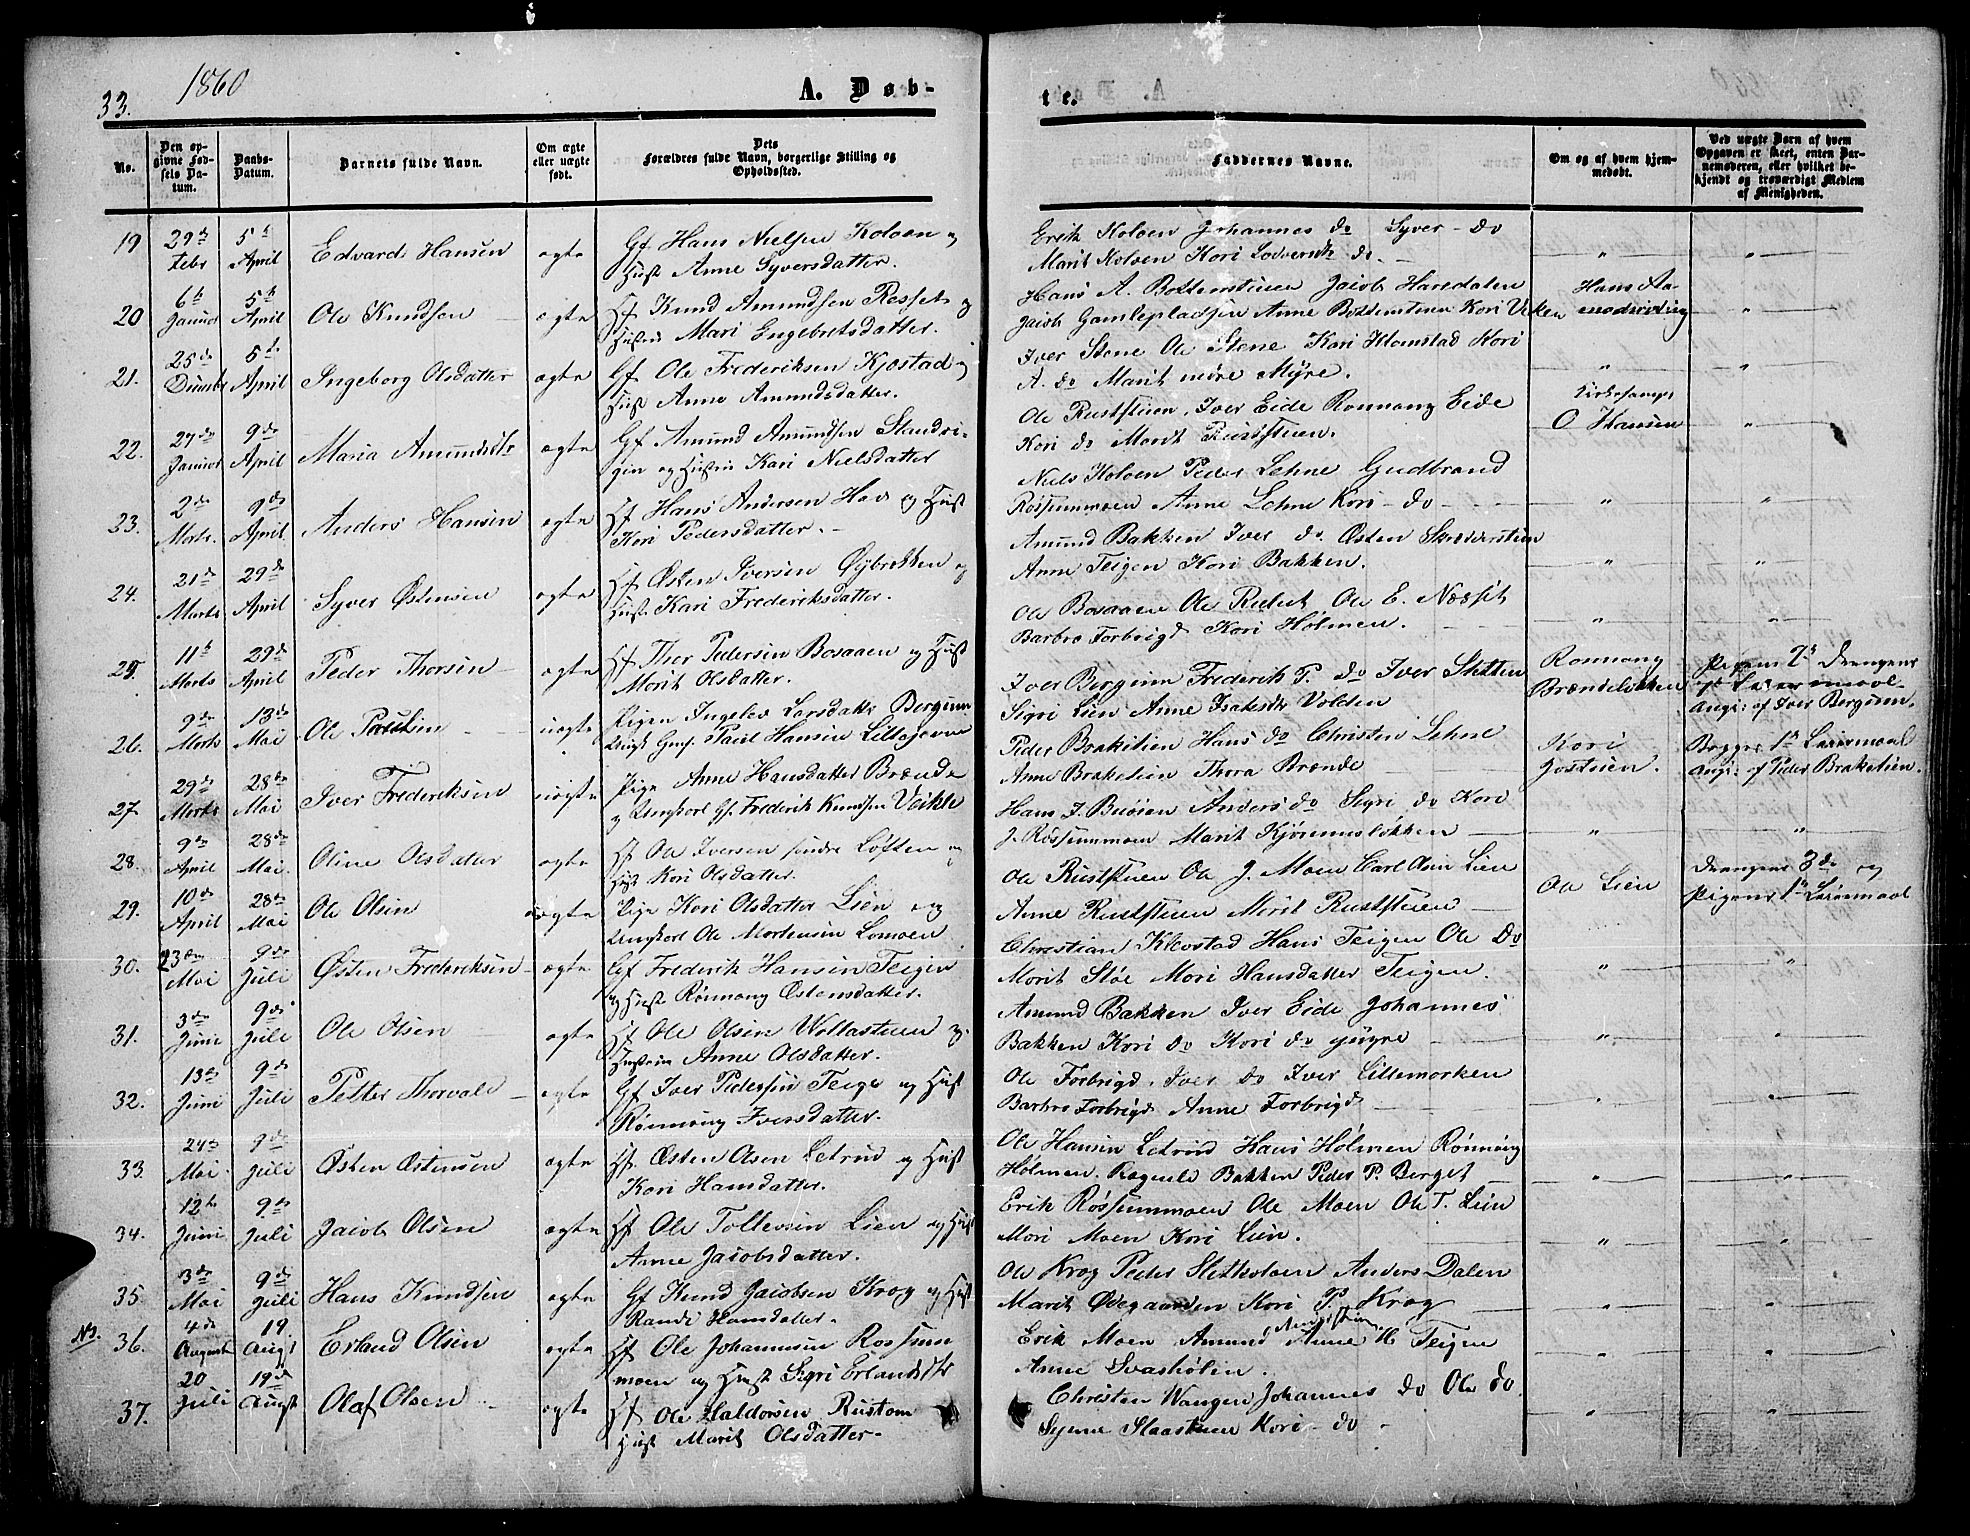 33.
1860
A. Døb-
te.
No.
Den op-
givne Fød-
sels Da-
tum.
Daabs-
Datum.
Barnets fulde Navn.
Om ægte
eller uægte
født.
Dets
Forældres fulde Navn, borgerlige Stilling og
Opholdssted.
Faddernes Navne.
Om og af hvem hjem-
medøbt.
Ved uægte Barn af hvem
Opgaven er skeet, enten Bar-
nemoderen, eller hvilket be-
kjendt og troværdigt Medlem
af Menigheden.
19 29de Febr 5te April Edvard Hansen ægte
Gf Hans Nielsen Koloen og
Hust Anne Syversdatter.
Erik Koloen Johannes do Syver - do
Marit Koloen Kari do. - " "
20 6te Januar 5te April Ole Knudsen ægte
Hf Knud Amundsen Resset og
Hustru Mari Engebretsdatter.
Hans A. Bottenstuen Jacob Haredalen
Jacob Gamlepladsen Anne Bottenstuen Kari Viken
Hans Aa-
modsviding "
21. 25de 5te April Ingeborg Olsdatter ægte
Gf Ole Frederiksen Kjøstad og
Hust Anne Amundsdatter.
Iver Stene Ole Stene Kari Klomstad Kari
A. do Marit nedre Myre. " "
22. 27de Januar 9de April Maria Amundsdtr ægte
Gf Amund Amundsen Slandri-
gin og Hustru Kari Nielsdatter
Ole Ruststuen, Iver Eide Ronnaug Eide
Kari do Marit Ruststuen.
Kirkesanger
O Hansen "
23. 2de Marts. 9de April Anders Hansen ægte
Hf Hans Andersen Hov og Hust
Kari Pedersdatter. -
Niels Koloen Peder Lehne Gudbrand
Røssummoen Anne Lehne Kari - do " "
24. 21de Marts 29de April Syver Østensen ægte
Hf Østen Iversen Øybrekken og
Hust Kari Frederiksdatter.
Amund Bakken Iver do. Østen Skrædderstuen
Anne Teigen Kari Bakken. " "
25. 11te Marts 29de April Peder Thorsen ægte
Hf Thor Pedersen Bosaaen og Hust
Marit Olsdatter.
Ole Bosaaen Ole Rudect Ole E. Næsset
Barbro Forbrigd Kari Holmen. " "
26. 9de Marts 13de Mai Ole Paulsen uægte
Pigen Ingelev Larsdattr Bergum
Ungk Gmf. Paul Hansen Lillegevne
Iver Bergum Frederik P. do Iver Stetten
Sigri Lien Anne Isaksdtr Volden
Ronnaug
Brændeløkken
Pigens 2de Drengens
1te Leiermaal-
Angi: af Iver Bergum.
27. 29de Marts 28de Mai Iver Frederiksen uægte
Pige Anne Hansdatter Brænde
og Ungkarl Gf. Frederik Knudsen Veikle
Peder Brakelien Hans do Christen Lehne
Anne Brakelien Thora Brænde
Kari
Jostuen.
Begges 1te Leiermaal
Angi: af Peder Brakelien.
28. 9de April 28de Mai. Oline Olsdatter ægte
Hf Ole Iversen søndre Løften og
Hust Kari Olsdatter.
Hans J. Buøien Anders do Sigri do Kari
J. Røssummoen Marit Kjøremsløkken " "
29. 10de April 28de Mai Ole Olsen uægte
Pige Kari Olsdatter Lien og
Ungkarl Ole Mortensen Lomoen
Ole Ruststuen Ole J. Moen Carl Olsen Lien
Anne Ruststuen Marit Ruststuen
Ole Lien
Drengens 3de og
Pigens 1te Leiermaal
30. 23de Mai 9de Juli Østen Frederiksen ægte
Gf Frederik Hansen Teigen
og Hust Rønnaug Østensdatter.
Christian Klevstad Hans Teigen Ole do
Marit Stoe Mari Hansdatter Teigen. " "
31. 3de Juni 9de Juli Ole Olsen ægte
Hf Ole Olsen Wollastuen og.
Hustru Anne Olsdatter.
Amund Bakken Iver Eide Johannes
Bakken Kari do Kari do yngre " "
32. 13de Juni 9de Juli Petter Thorvald ægte
Gf Iver Pedersen Teige og Hust
Rønnaug Iversdatter.
Ole Forbrigd. Iver do Iver Lillemorken
Barbro Forbrigd Anne Forbrigd " "
33. 24de Mai. 9de Juli Østen Østensen ægte
Hf Østen Olsen Letrud og Hust
Kari Hansdatter.
Ole Hansen Letrud Hans Holmen Rønnaug
Holmen. Ragnild Bakken Peder P. Berget " "
34. 12te Juni 9de Juli Jacob Olsen ægte
Hf Ole Tollevsen Lien og Hust
Anne Jacobsdatter.
Erik Røssummoen Ole Moen Ole T. Lien
Mari Moen Kari Lien. " "
35. 3de Mai 9de Juli Hans Knudsen ægte
Gf Knud Jacobsen Krog og Hust
Randi Hansdatter.
Ole Krog Peder Sletkoloen Anders Dalen
Marit Ødegaarden Kari P. Krog " "
No. 36. 4de August 19 Augs Erland Olsen ægte
Hf Ole Johannesen Røssum
moen og Hust Sigri Erlandsdtr
Erik Moen Amund Anne H. Teigen
Anne Svashølen. " "
37. 20 Juli 19de August Olaf Olsen ægte
Hf Ole Haldorsen Rustom
Hust Marit Olsdatter-
Christen Wangen Johannes do Ole do.
Synne Slaastuen Kari - do - " "